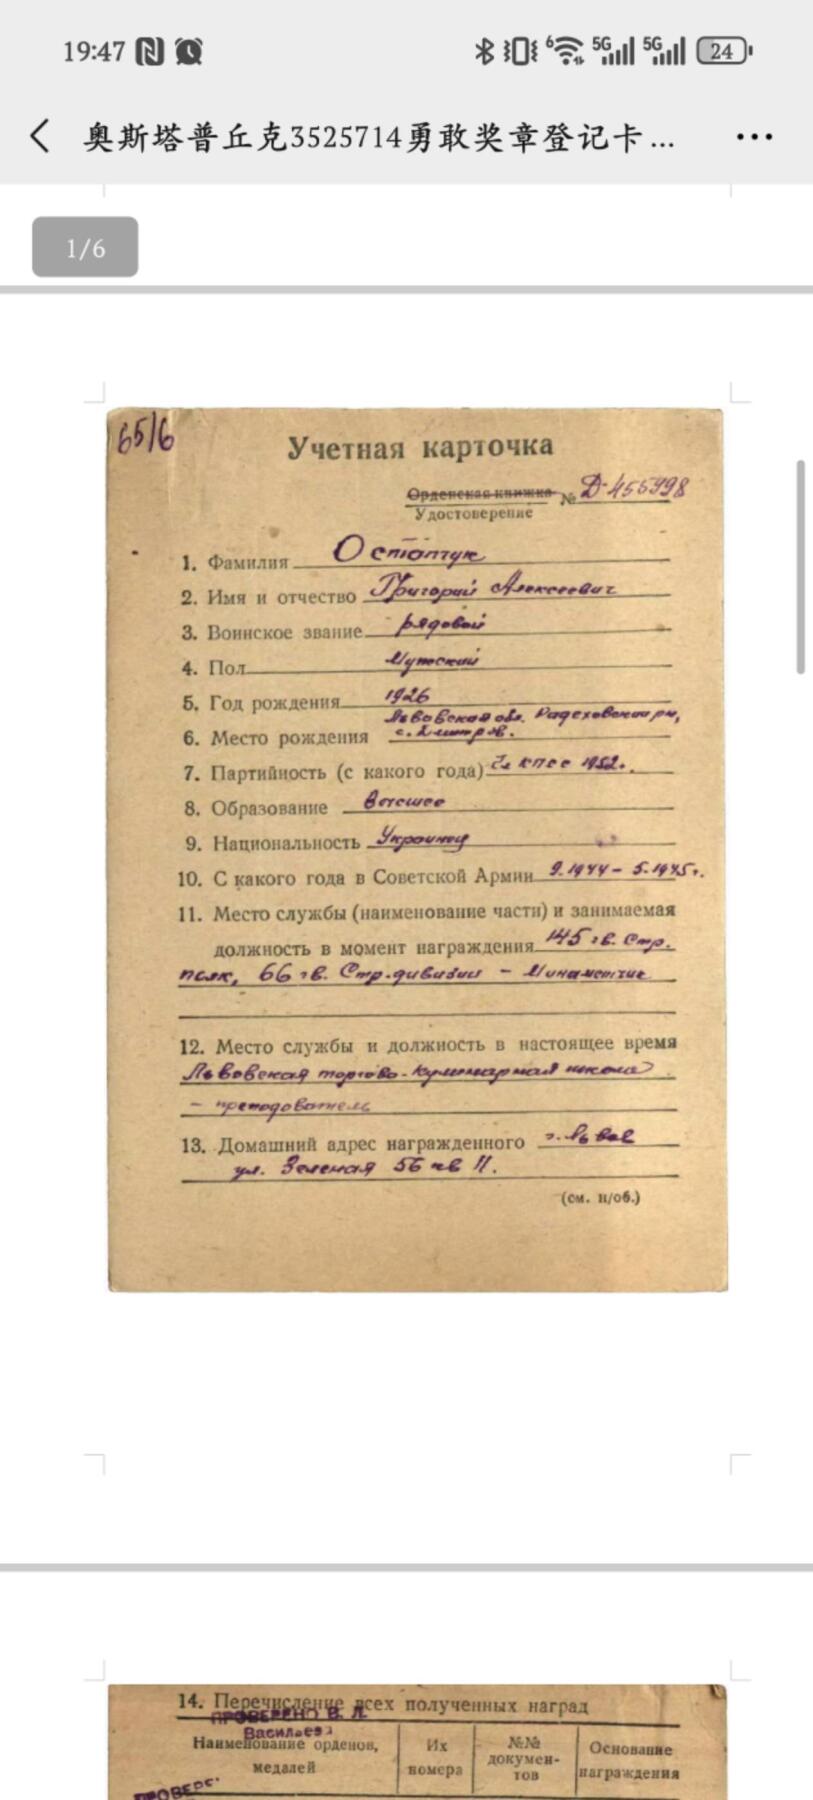 19:47 6 5G 5G 24
奥斯塔普丘克3525714勇敢奖章登记卡...
1/6
65/6
Учетная карточка
Орденская книжка
Удостоверение № Д-455998
1. Фамилия Остапчук
2. Имя и отчество Григорий Алексеевич
3. Воинское звание рядовой
4. Пол Мужской
5. Год рождения 1926
Львовская обл. Радеховский рн,
6. Место рождения с. Дмитров.
7. Партийность (с какого года) Чл КПСС 1952г.
8. Образование Высшее
9. Национальность Украинец
10. С какого года в Советской Армии 9.1944 - 5.1945г.
11. Место службы (наименование части) и занимаемая
должность в момент награждения 145 гв. Стр.
полк, 66 гв. Стр. дивизии - Минаметчик
12. Место службы и должность в настоящее время
Львовская торгово-кулинарная школа
- преподователь
13. Домашний адрес награжденного г. Львов
ул. Зеленая 56 кв 11.
(см. н/об.)
14. Перечисление всех полученных наград
ПРОВЕРЕНО В. Л.
Васильева
Наименование орденов, медалей
Их номера
№№ докумен-тов
Основание награждения
ПРОВЕРЕ